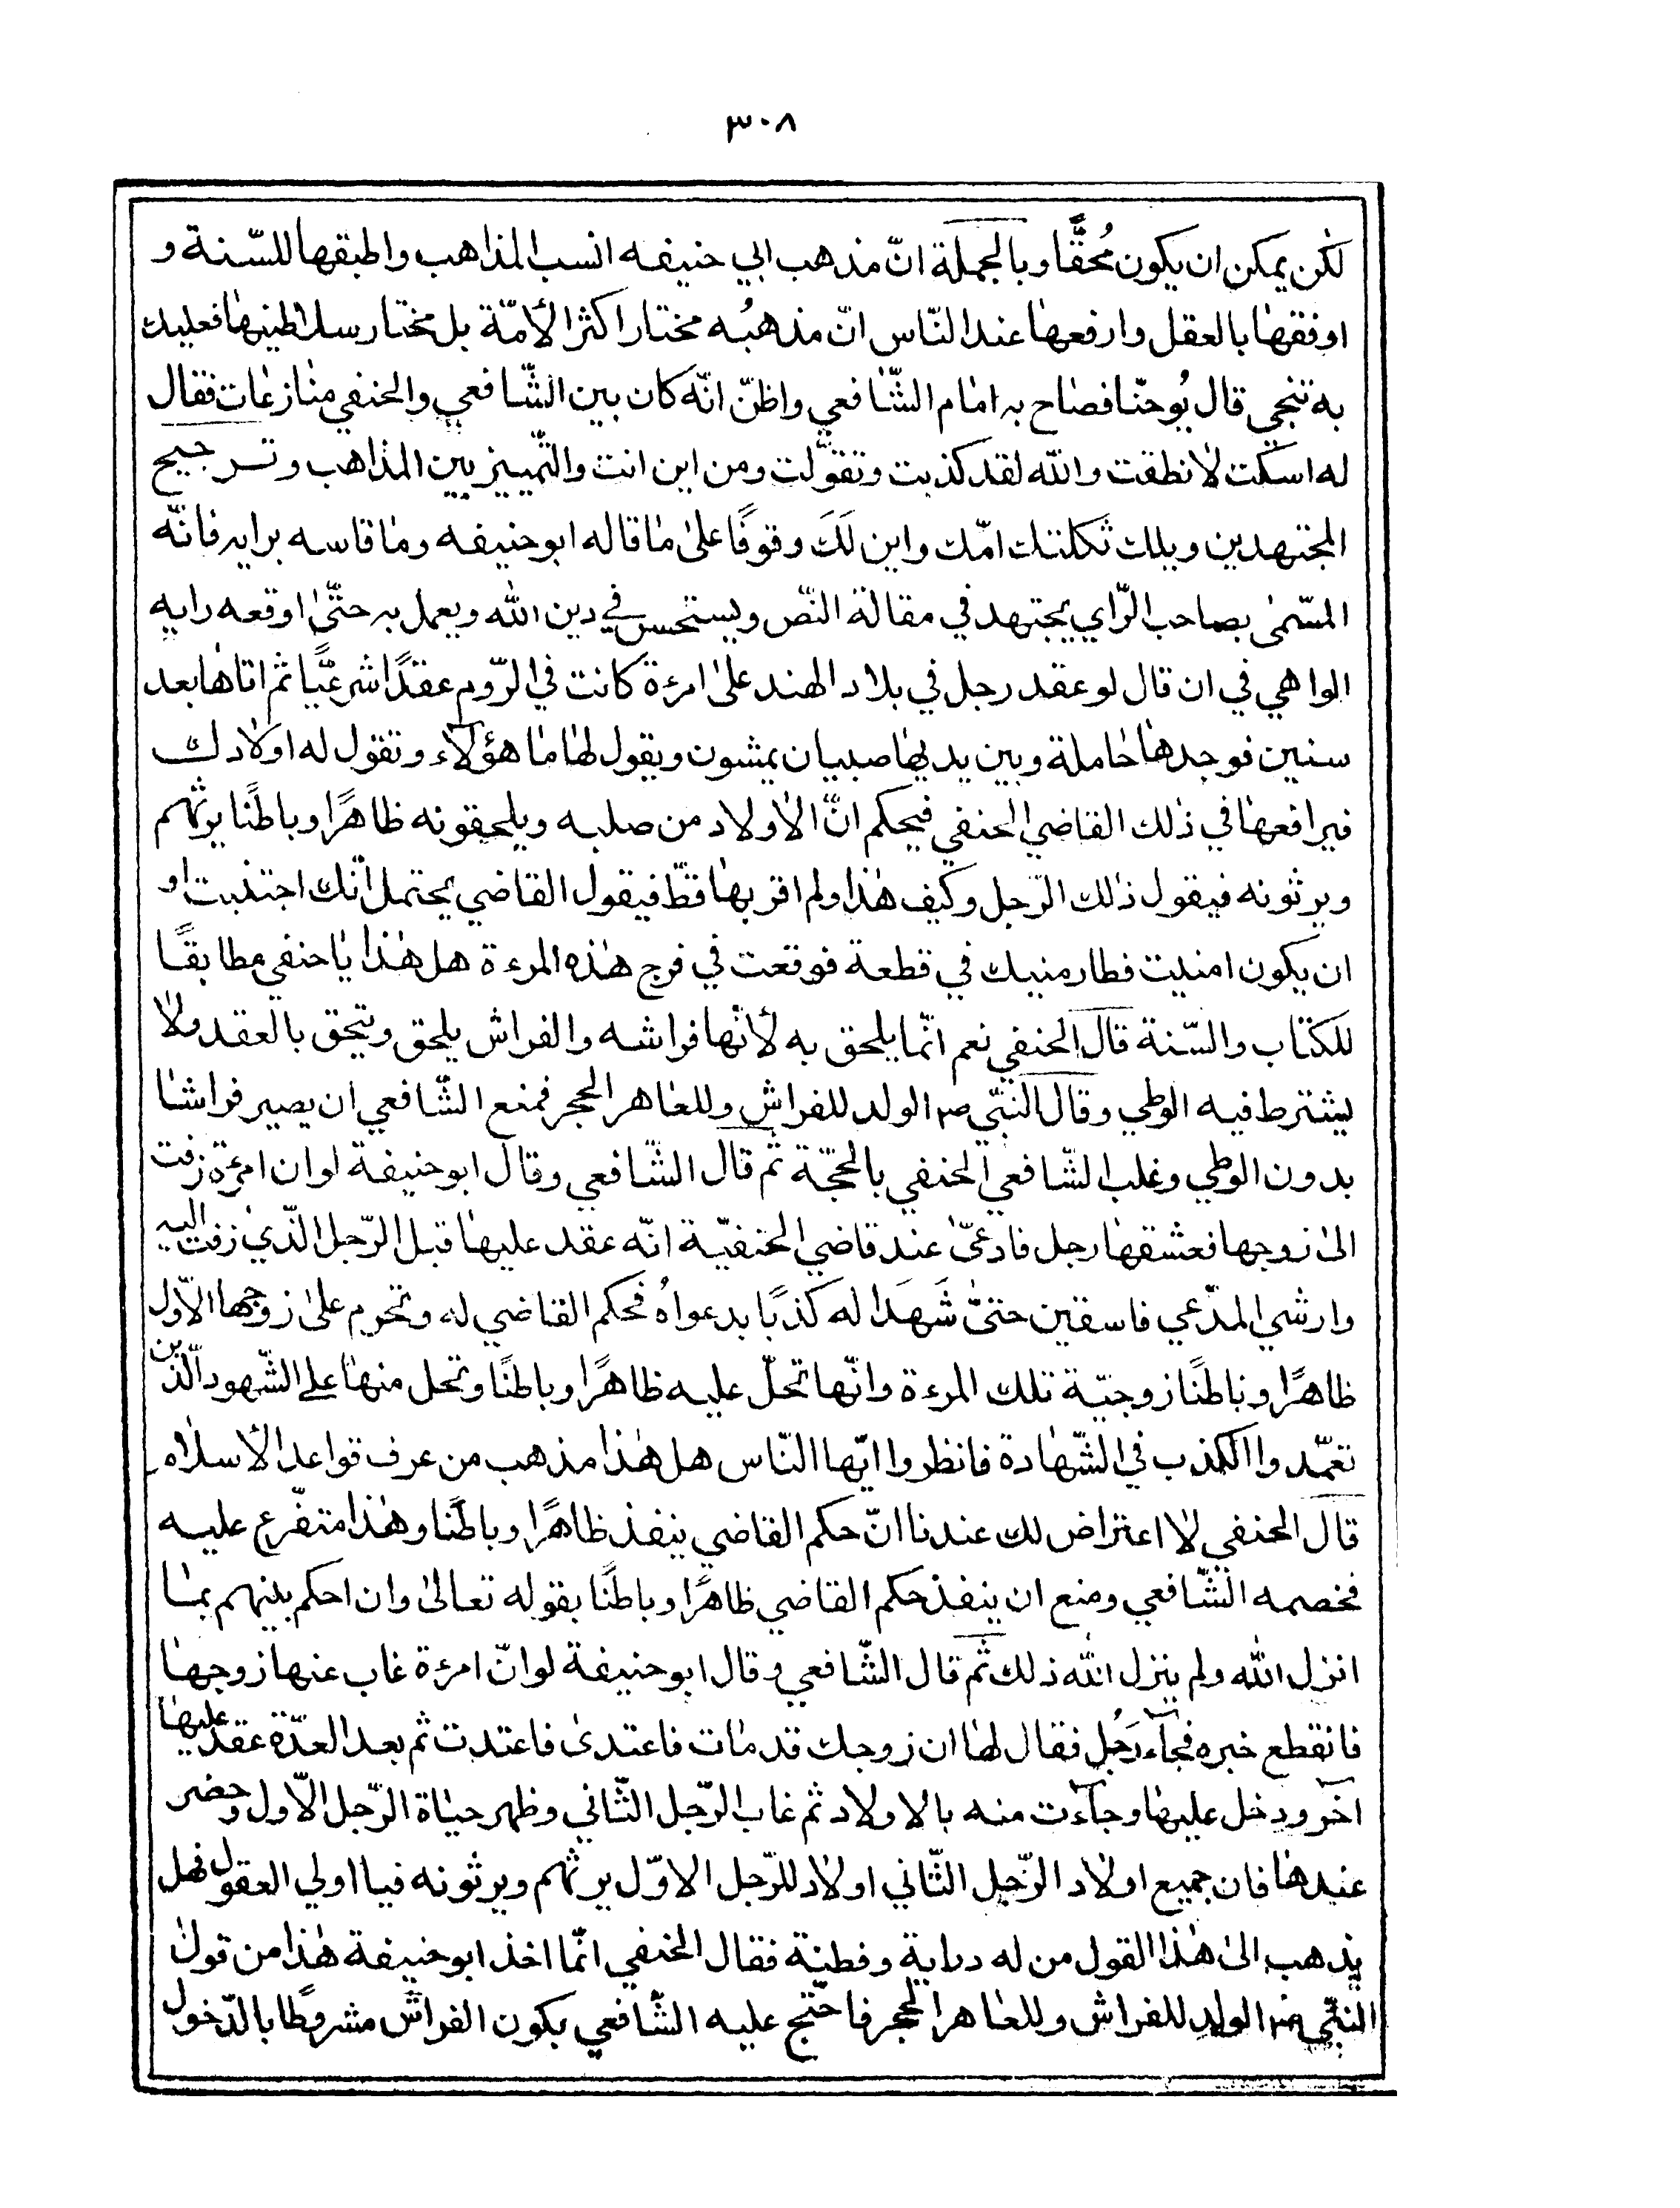 ٣٠٨
لكن يمكن ان يكون مُحقًّا وبالجملة انّ مذهب ابي حنيفه انسب المذاهب واطبقها للسّنة و
اوفقهٰا بالعقل وارفعهٰا عند النّاس انّ مذهبُه مختار اكثر الأمّة بل مختار سلٰاطينهٰا فعليك
به تنجى قال يُوحنّا فصٰاح به امٰام الشّٰافعي واظنّ انّه كان بين الشّٰافعي والحنفي منٰازعٰات فقال
له اسكت لٰا نطقت والله لقد كذبت وتقوّلت ومن اين انت والتّمييز بين المذاهب وترجيح
المجتهدين ويلك ثكلتك امّك واين لَكَ وقوفًا علىٰ مٰا قاله ابو حنيفه ومٰا قاسه برايه فانّه
المسّمىٰ بصٰاحب الرّاي يجتهد في مقالة النّص ويستحسن في دين الله ويعمل به حتّىٰ اوقعه رايه
الواهي في ان قال لو عقد رجل في بلاد الهند علىٰ امرءة كانت في الرّوم عقدًا شرعيًّا ثم اتاهٰا بعد
سنين فوجدهٰا حٰاملة وبين يديهٰا صبيان يمشون ويقول لهٰا مٰا هؤلآء وتقول له اولٰادك
فيرافعهٰا في ذٰلك القاضي الحنفي فيحكم انّ الأولاد من صلبه ويلحقونه ظاهرًا وباطنًا يرثهم
ويرثونه فيقول ذٰلك الرّجل وكيف هٰذا ولم اقربهٰا قطّ فيقول القاضي يحتمل انّك اجتذبت او
ان يكون امنيت فطار منيك في قطعة فوقعت في فرج هٰذه المرءة هل هٰذا يٰا حنفي مطابقًا
للكتٰاب والسّنة قال الحنفي نعم انّما يلحق به لأنّها فراشه والفراش يلحق وتيحق بالعقد ولٰا
يشترط فيه الوطي وقال النبّي ص الولد للفراش وللعٰاهر الحجر فمنع الشّٰافعي ان يصير فراشٰا
بدون الوطي وغلب الشّٰافعي الحنفي بالحجّة ثم قال الشّٰافعي وقال ابو حنيفة لو ان امرءة زفت
الىٰ زوجها فعشقهٰا رجل فادعىّٰ عند قاضي الحنفيّة انّه عقد عليهٰا قبل الرّجل الّذي زفت اليه
وارشي المدّعي فاسقين حتىّٰ شَهَدا له كذبًا بدعواهُ فحكم القاضي له وتحرم علىٰ زوجها الأوّل
ظاهرًا وباطنًا زوجيّة تلك المرءة وانّها تحلّ عليه ظاهرًا وباطنًا وتحل منهٰا على الشّهود الّذين
تعمّدوا الكذب في الشّهٰادة فانظروا ايّها النّاس هل هٰذا مذهب من عرف قواعد الأسلٰام
قال الحنفي لٰا اعتراض لك عندنا انّ حكم القاضي ينفذ ظاهرًا وباطنًا وهٰذا متفّرع عليه
فخصمه الشّٰافعي ومنع ان ينفذ حكم القاضي ظاهرًا وباطنًا بقوله تعالىٰ وان احكم بينهم بمٰا
انزل الله ولم ينزل الله ذلك ثم قال الشّٰافعي وقال ابو حنيفة لو انّ امرءة غاب عنها زوجهٰا
فانقطع خبره فجآء رَجُل فقال لهٰا ان زوجك قد مٰات فاعتدى فاعتدت ثم بعد العدّة عقد عليهٰا
آخر ودخل عليهٰا وجآءت منه بالاولاد ثم غاب الرّجل الثّاني وظهر حيٰاة الرّجل الاّول وحضر
عندهٰا فان جميع اولٰاد الرّجل الثّاني اولٰاد للرّجل الاوّل يرثهم ويرثونه فيا اولي العقول فهل
يذهب الىٰ هٰذا القول من له دراية وفطنة فقال الحنفي انّما اخذ ابو حنيفة هٰذا من قول
النبّي ص الولد للفراش وللعٰاهر الحجر فاحّتج عليه الشّٰافعي بكون الفراش مشروطًا بالدّخول